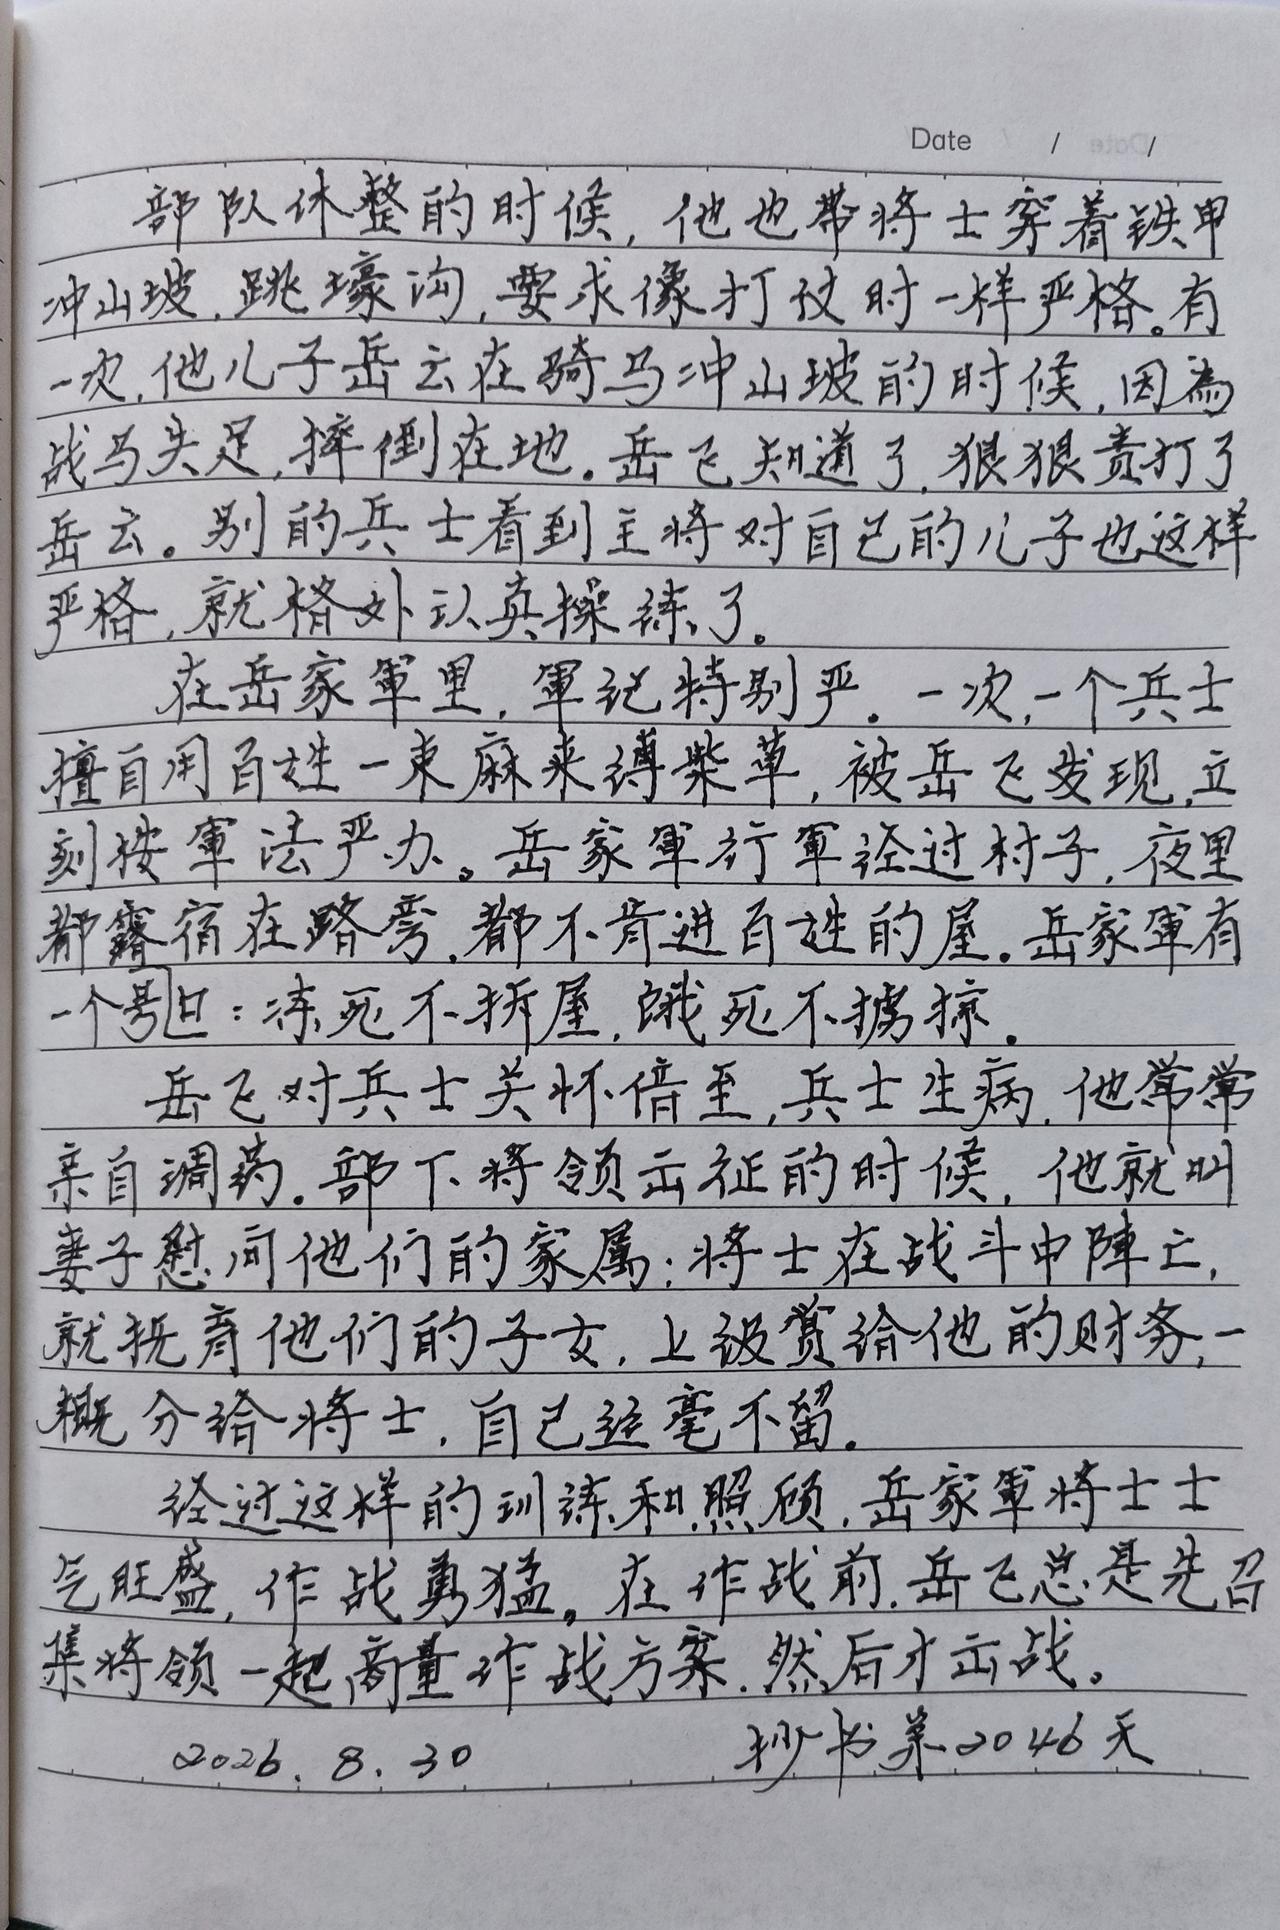 Date / /
部队休整的时候，他也带将士穿着铁甲
冲山坡，跳壕沟，要求像打仗时一样严格。有
一次，他儿子岳云在骑马冲山坡的时候，因為
战马失足，摔倒在地。岳飞知道了，狠狠责打了
岳云。别的兵士看到主将对自己的儿子也这样
严格，就格外认真操练了。
在岳家軍里，軍记特别严。一次，一个兵士
擅自用百姓一束麻来缚柴草，被岳飞发现，立
刻按軍法严办。岳家軍行軍经过村子，夜里
都露宿在路旁，都不肯进百姓的屋。岳家軍有
一个号口：冻死不拆屋，饿死不掳掠。
岳飞对兵士关怀倍至，兵士生病，他常常
亲自调药。部下将领出征的时候，他就叫
妻子慰问他们的家属；将士在战斗中陣亡，
就抚育他们的子女，上级赏给他的财务，一
概分给将士，自己丝毫不留。
经过这样的训练和照顾，岳家軍将士士
气旺盛，作战勇猛。在作战前，岳飞总是先召
集将领一起商量作战方案，然后才出战。
2026.8.30 抄书第2046天